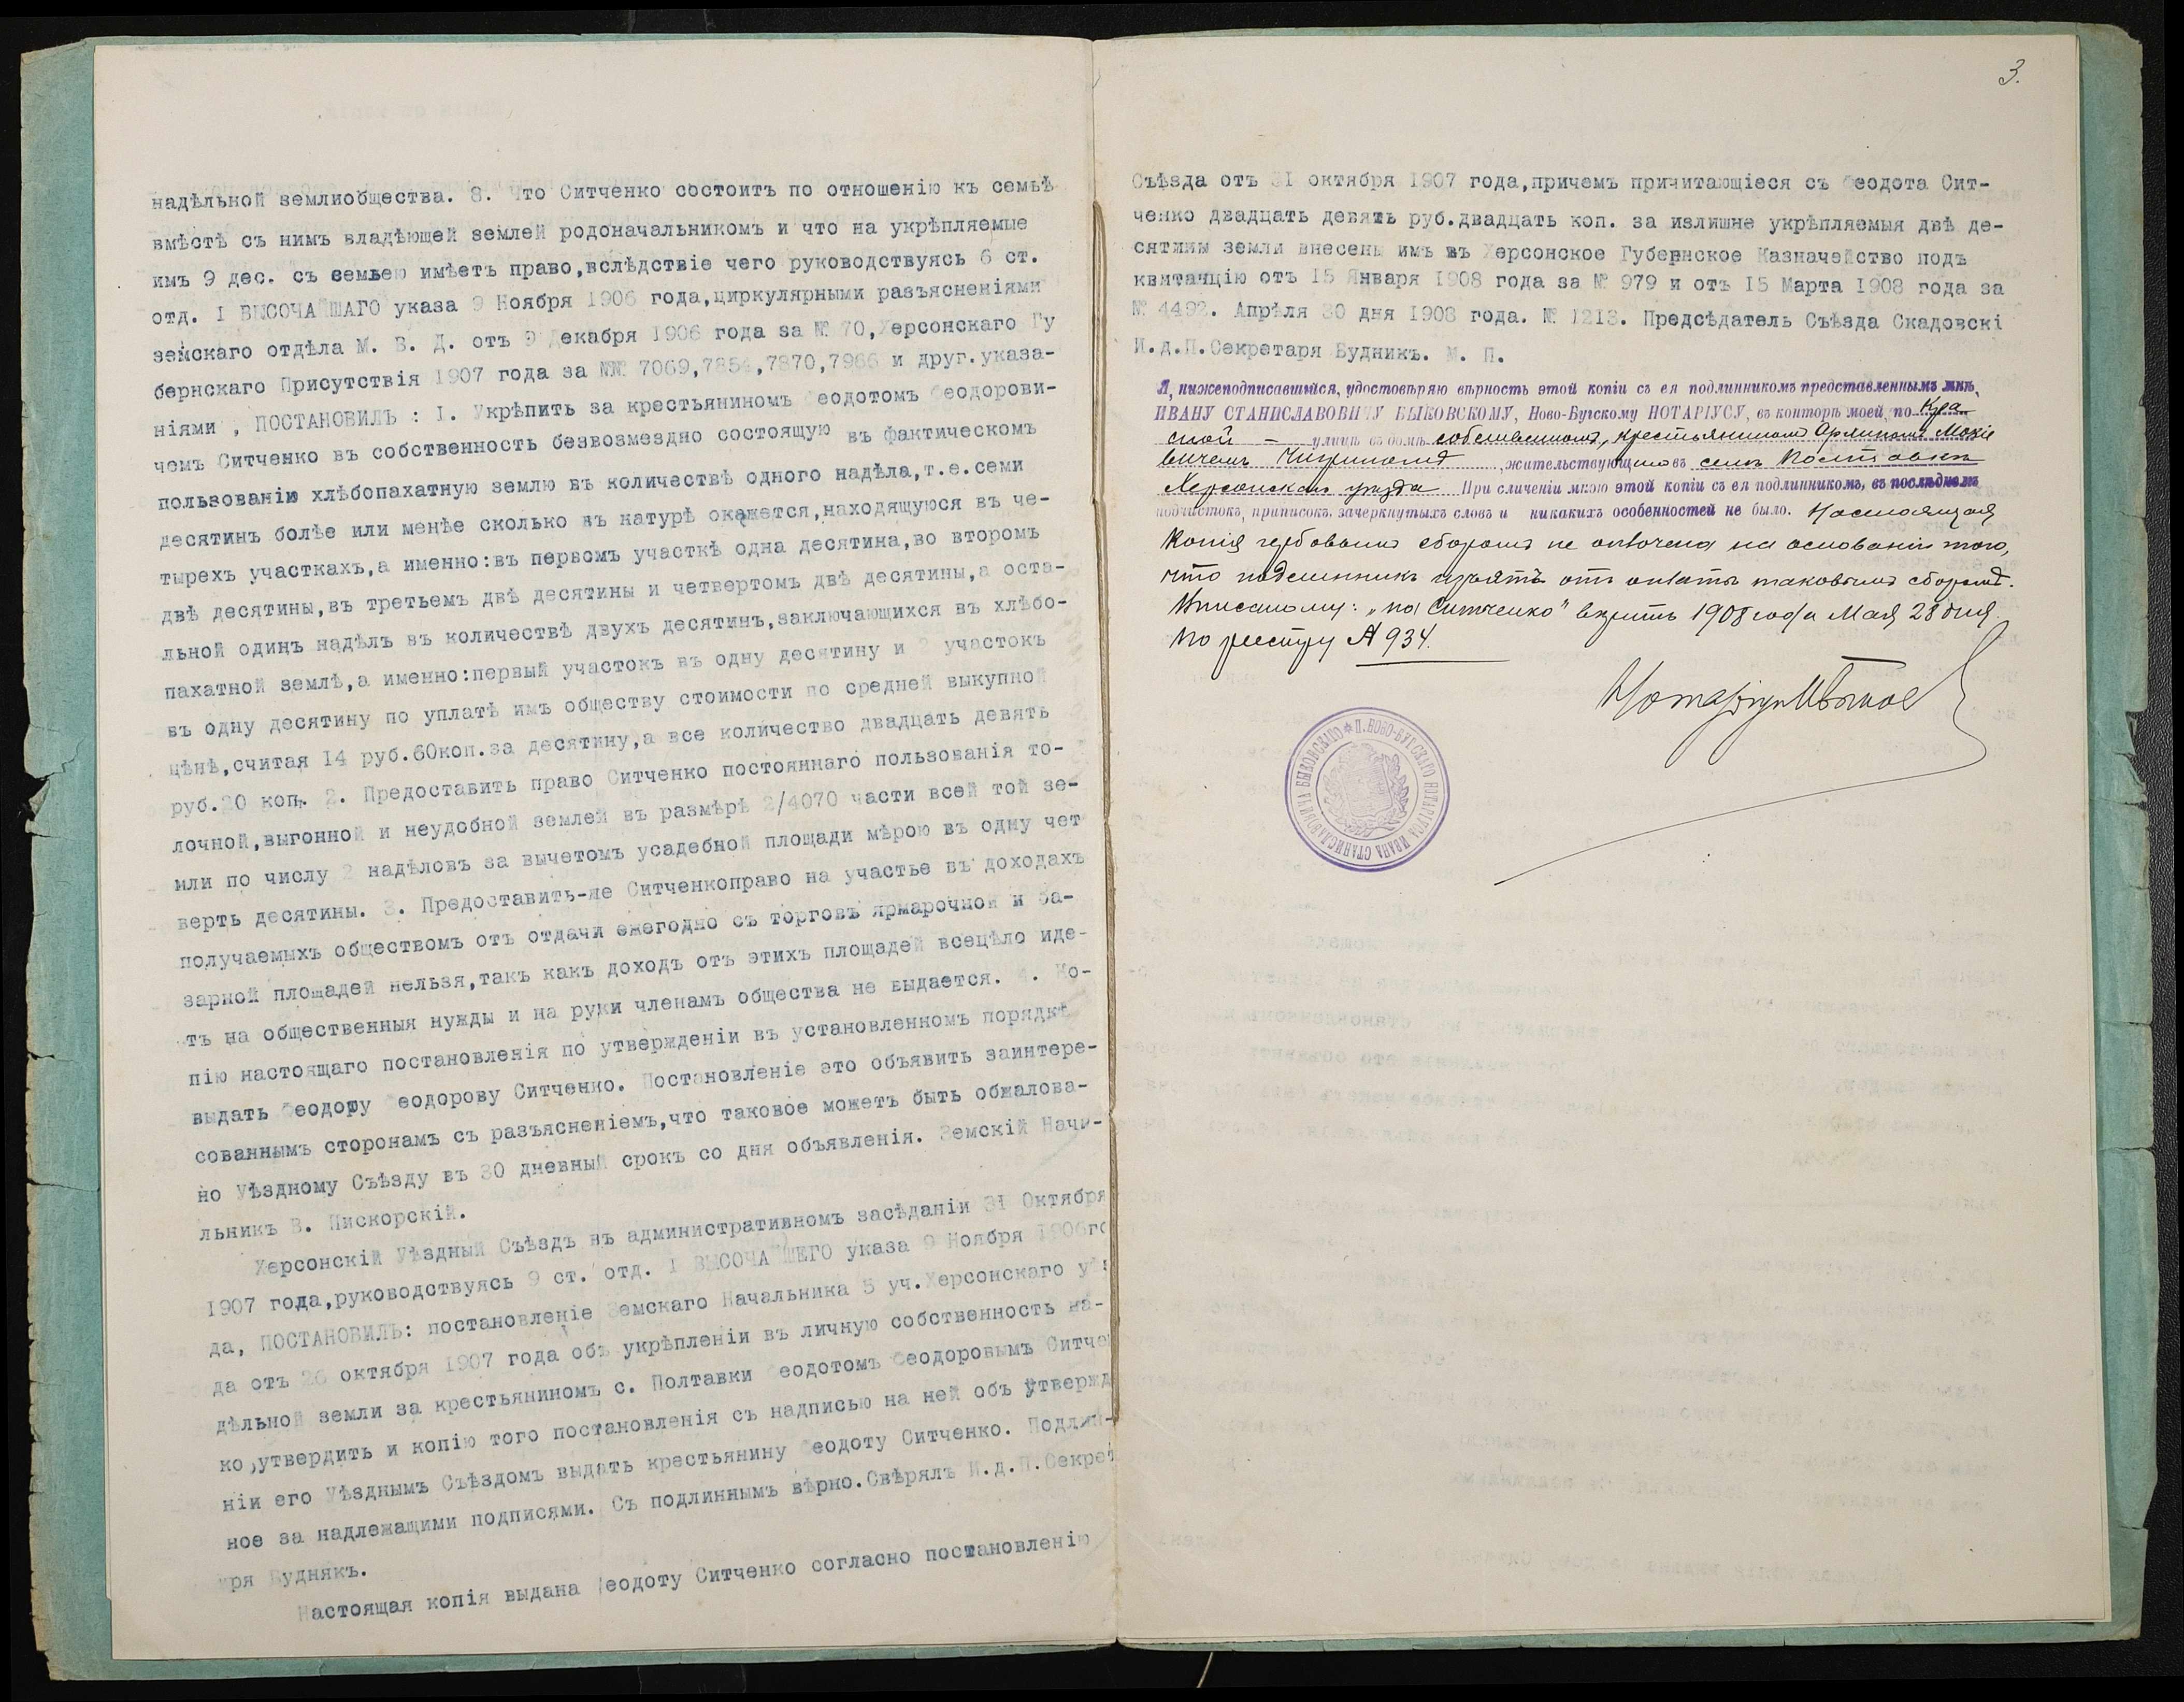 надѣльной землиобщества. 8. Что Ситченко состоитъ по отношенію къ семьѣ
вмѣстѣ съ нимъ владѣющей землей родоначальникомъ и что на укрѣпляемые
имъ 9 дес. съ семьею имѣетъ право,вслѣдствіе чего руководствуясь 6 ст.
отд. I ВЫСОЧАЙШАГО указа 9 Ноября 1906 года,циркулярными разъясненіями
земскаго отдѣла М. В. Д. отъ 9 Декабря 1906 года за № 70,Херсонскаго Гу
бернскаго Присутствія 1907 года за №№ 7069,7854,7870,7966 и друг.указа-
ніями , ПОСТАНОВИЛЪ : I. Укрѣпить за крестьяниномъ Ѳеодотомъ Ѳеодорови-
чемъ Ситченко въ собственность безвозмездно состоящую въ фактическомъ
пользованію хлѣбопахатную землю въ количествѣ одного надѣла,т.е.семи
десятинъ болѣе или менѣе сколько въ натурѣ окажется,находящуюся въ че-
тырехъ участкахъ,а именно:въ первомъ участкѣ одна десятина,во второмъ
двѣ десятины,въ третьемъ двѣ десятины и четвертомъ двѣ десятины,а оста-
льной одинъ надѣлъ въ количествѣ двухъ десятинъ,заключающихся въ хлѣбо-
пахатной землѣ,а именно:первый участокъ въ одну десятину и 2 участокъ
въ одну десятину по уплатѣ имъ обществу стоимости по средней выкупной
цѣнѣ,считая 14 руб.60коп.за десятину,а все количество двадцать девять
руб.20 коп. 2. Предоставить право Ситченко постояннаго пользованія то-
лочной,выгонной и неудобной землей въ размѣрѣ 2/4070 части всей той зе-
мли по числу 2 надѣловъ за вычетомъ усадебной площади мѣрою въ одну чет
верть десятины. 3. Предоставить-же Ситченкоправо на участье въ доходахъ
получаемыхъ обществомъ отъ отдачи ежегодно съ торговъ ярмарочной и ба-
зарной площадей нельзя,такъ какъ доходъ отъ этихъ площадей всецѣло иде-
тъ на общественныя нужды и на руки членамъ общества не выдается. 4. Ко-
пію настоящаго постановленія по утвержденіи въ установленномъ порядкѣ
выдать Ѳеодоту Ѳеодорову Ситченко. Постановленіе это объявить заинтере-
сованнымъ сторонамъ съ разъясненіемъ,что таковое можетъ быть обжалова-
но Уѣздному Съѣзду въ 30 дневный срокъ со дня объявленія. Земскій Начи-
льникъ В. Пискорскій.
Херсонскій Уѣздный Съѣздъ въ административномъ засѣданіи 31 Октября
1907 года,руководствуясь 9 ст. отд. I ВЫСОЧАЙШЕГО указа 9 Ноября 1906го
да, ПОСТАНОВИЛЪ: постановленіе Земскаго Начальника 5 уч.Херсонскаго уѣз
да отъ 26 октября 1907 года объ укрѣпленіи въ личную собственность на-
дѣльной земли за крестьяниномъ с. Полтавки Ѳеодотомъ Ѳеодоровымъ Ситчен
ко,утвердить и копію того постановленія съ надписью на ней объ утвержд
ніи его Уѣзднымъ Съѣздомъ выдать крестьянину Ѳеодоту Ситченко. Подлин-
ное за надлежащими подписями. Съ подлиннымъ вѣрно.Свѣрялъ И.д.П.Секрет
аря Будникъ.
Настоящая копія выдана Ѳеодоту Ситченко согласно постановленію
3.
Съѣзда отъ 31 октября 1907 года,причемъ причитающіеся съ Ѳеодота Сит-
ченко двадцать девять руб.двадцать коп. за излишне укрѣпляемыя двѣ де-
сятины земли внесены имъ въ Херсонское Губернское Казначейство подъ
квитанцію отъ 15 Января 1908 года за № 979 и отъ 15 Марта 1908 года за
№ 4492. Апрѣля 30 дня 1908 года. № 1213. Предсѣдатель Съѣзда Скадовскі
И.д.П.Секретаря Будникъ. М. П.
Я, нижеподписавшійся, удостовѣряю вѣрность этой копіи съ ея подлинникомъ представленнымъ мнѣ,
ИВАНУ СТАНИСЛАВОВИЧУ БЫКОВСКОМУ, Ново-Бугскому НОТАРІУСУ, въ конторѣ моей, по Кра
сной – улицѣ въ домѣ собственномъ, крестьяниномъ Моkie
вичемъ Чигриномъ, жительствующимъ въ селѣ Полтавкѣ
Херсонскаго уѣзда При сличеніи мною этой копіи съ ея подлинникомъ, въ послѣднемъ
подчистокъ, приписокъ, зачеркнутыхъ словъ и никакихъ особенностей не было. Настоящая
копія гербовымъ сборомъ не оплочена на основаніи того,
что подлинникъ изъятъ отъ оплаты таковымъ сборомъ.
Вписанному: "на Ситченко" вѣрить 1908 года Мая 28 дня.
По реестру № 934.
Нотаріусъ И Быковс
П. НОВО-БУГСКАГО НОТАРІУСА ИВАНА СТАНИСЛАВОВИЧА БЫКОВСКАГО